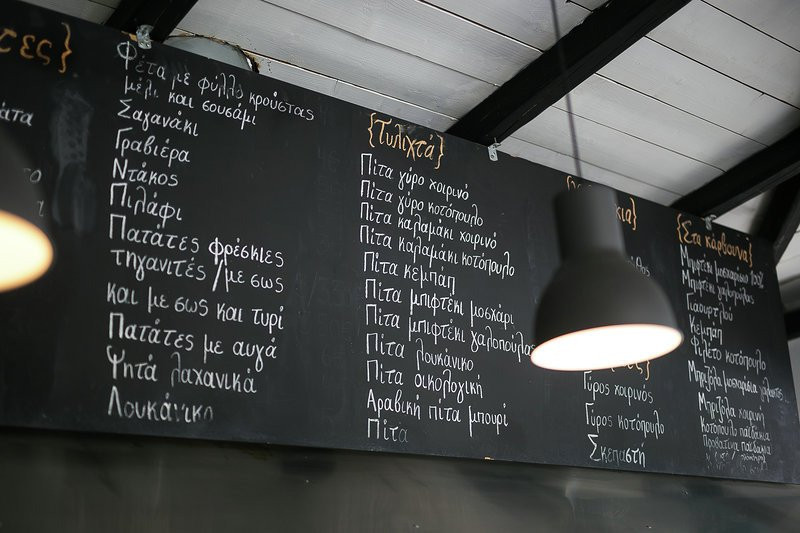 τες}
Φέτα με φύλλο κρούστας
μέλι και σουσάμι
Σαγανάκι
Γραβιέρα
Ντάκος
Πιλάφι
Πατάτες φρέσκιες
τηγανιτές / με σως
και με σως και τυρί
Πατάτες με αυγά
Ψητά λαχανικά
Λουκάνικο
{Τυλιχτά}
Πίτα γύρο χοιρινό
Πίτα γύρο κοτόπουλο
Πίτα καλαμάκι χοιρινό
Πίτα καλαμάκι κοτόπουλο
Πίτα κεμπάπ
Πίτα μπιφτέκι μοσχάρι
Πίτα μπιφτέκι γαλοπούλας
Πίτα λουκάνικο
Πίτα οικολογική
Αραβική πίτα μπουρί
Πίτα
Γύρος χοιρινός
Γύρος κοτόπουλο
Σκεπαστή
{Στα κάρβουνα}
Μπιφτέκι μοσχαρίσιο 100%
Μπιφτέκι γαλοπούλας
Γιαουρτλού
Κεμπάπ
Φιλέτο κοτόπουλο
Μπριζόλα μοσχαρίσια
Μπριζόλα χοιρινή
Κοτόπουλο παϊδάκια
Προβατίνα παϊδάκια